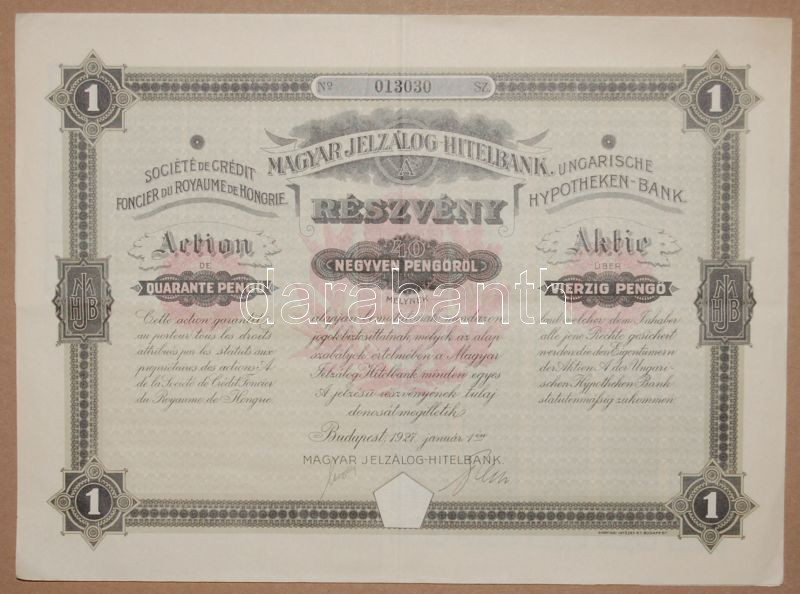 1
1
Nº 013030 SZ.
SOCIÉTÉ DE CRÉDIT
FONCIER DU ROYAUME DE HONGRIE.
Action
DE
QUARANTE PENGŐ
Cette action garantit
au porteur tous les droits
attribués par les statuts aux
propriétaires des actions A
de la Société de Crédit Foncier
du Royaume de Hongrie.
MAGYAR JELZÁLOG-HITELBANK.
A
RÉSZVÉNY
40
NEGYVEN PENGŐRŐL
MELYNEK
alapján birtokosának mindazon
jogok biztosíttatnak, melyek az alap-
szabályok értelmében a Magyar
Jelzálog-Hitelbank minden egyes
A jelzésű részvényének tulaj
donosát megilletik.
Budapest, 1927. január 1-én
MAGYAR JELZÁLOG-HITELBANK.
UNGARISCHE
HYPOTHEKEN-BANK.
Aktie
ÜBER
VIERZIG PENGŐ
laut welcher dem Inhaber
alle jene Rechte gesichert
werden die den Eigentümern
der Aktien A der Ungari-
schen Hypotheken Bank
statutenmäßig zukommen.
MJHB
MJHB
darabanth
1
1